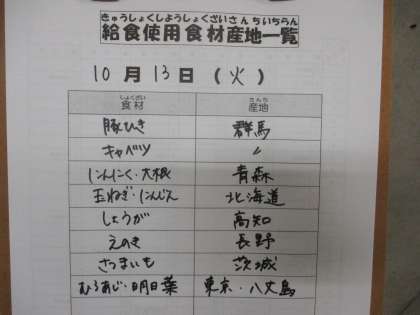 きゅうしょくしようしょくざいさんちいちらん
給食使用食材産地一覧
10月13日(火)
しょくざい さんち
食材 産地
豚ひき 群馬
キャベツ 〃
にんにく・大根 青森
玉ねぎ・にんじん 北海道
しょうが 高知
えのき 長野
さつまいも 茨城
むろあじ・明日葉 東京・八丈島